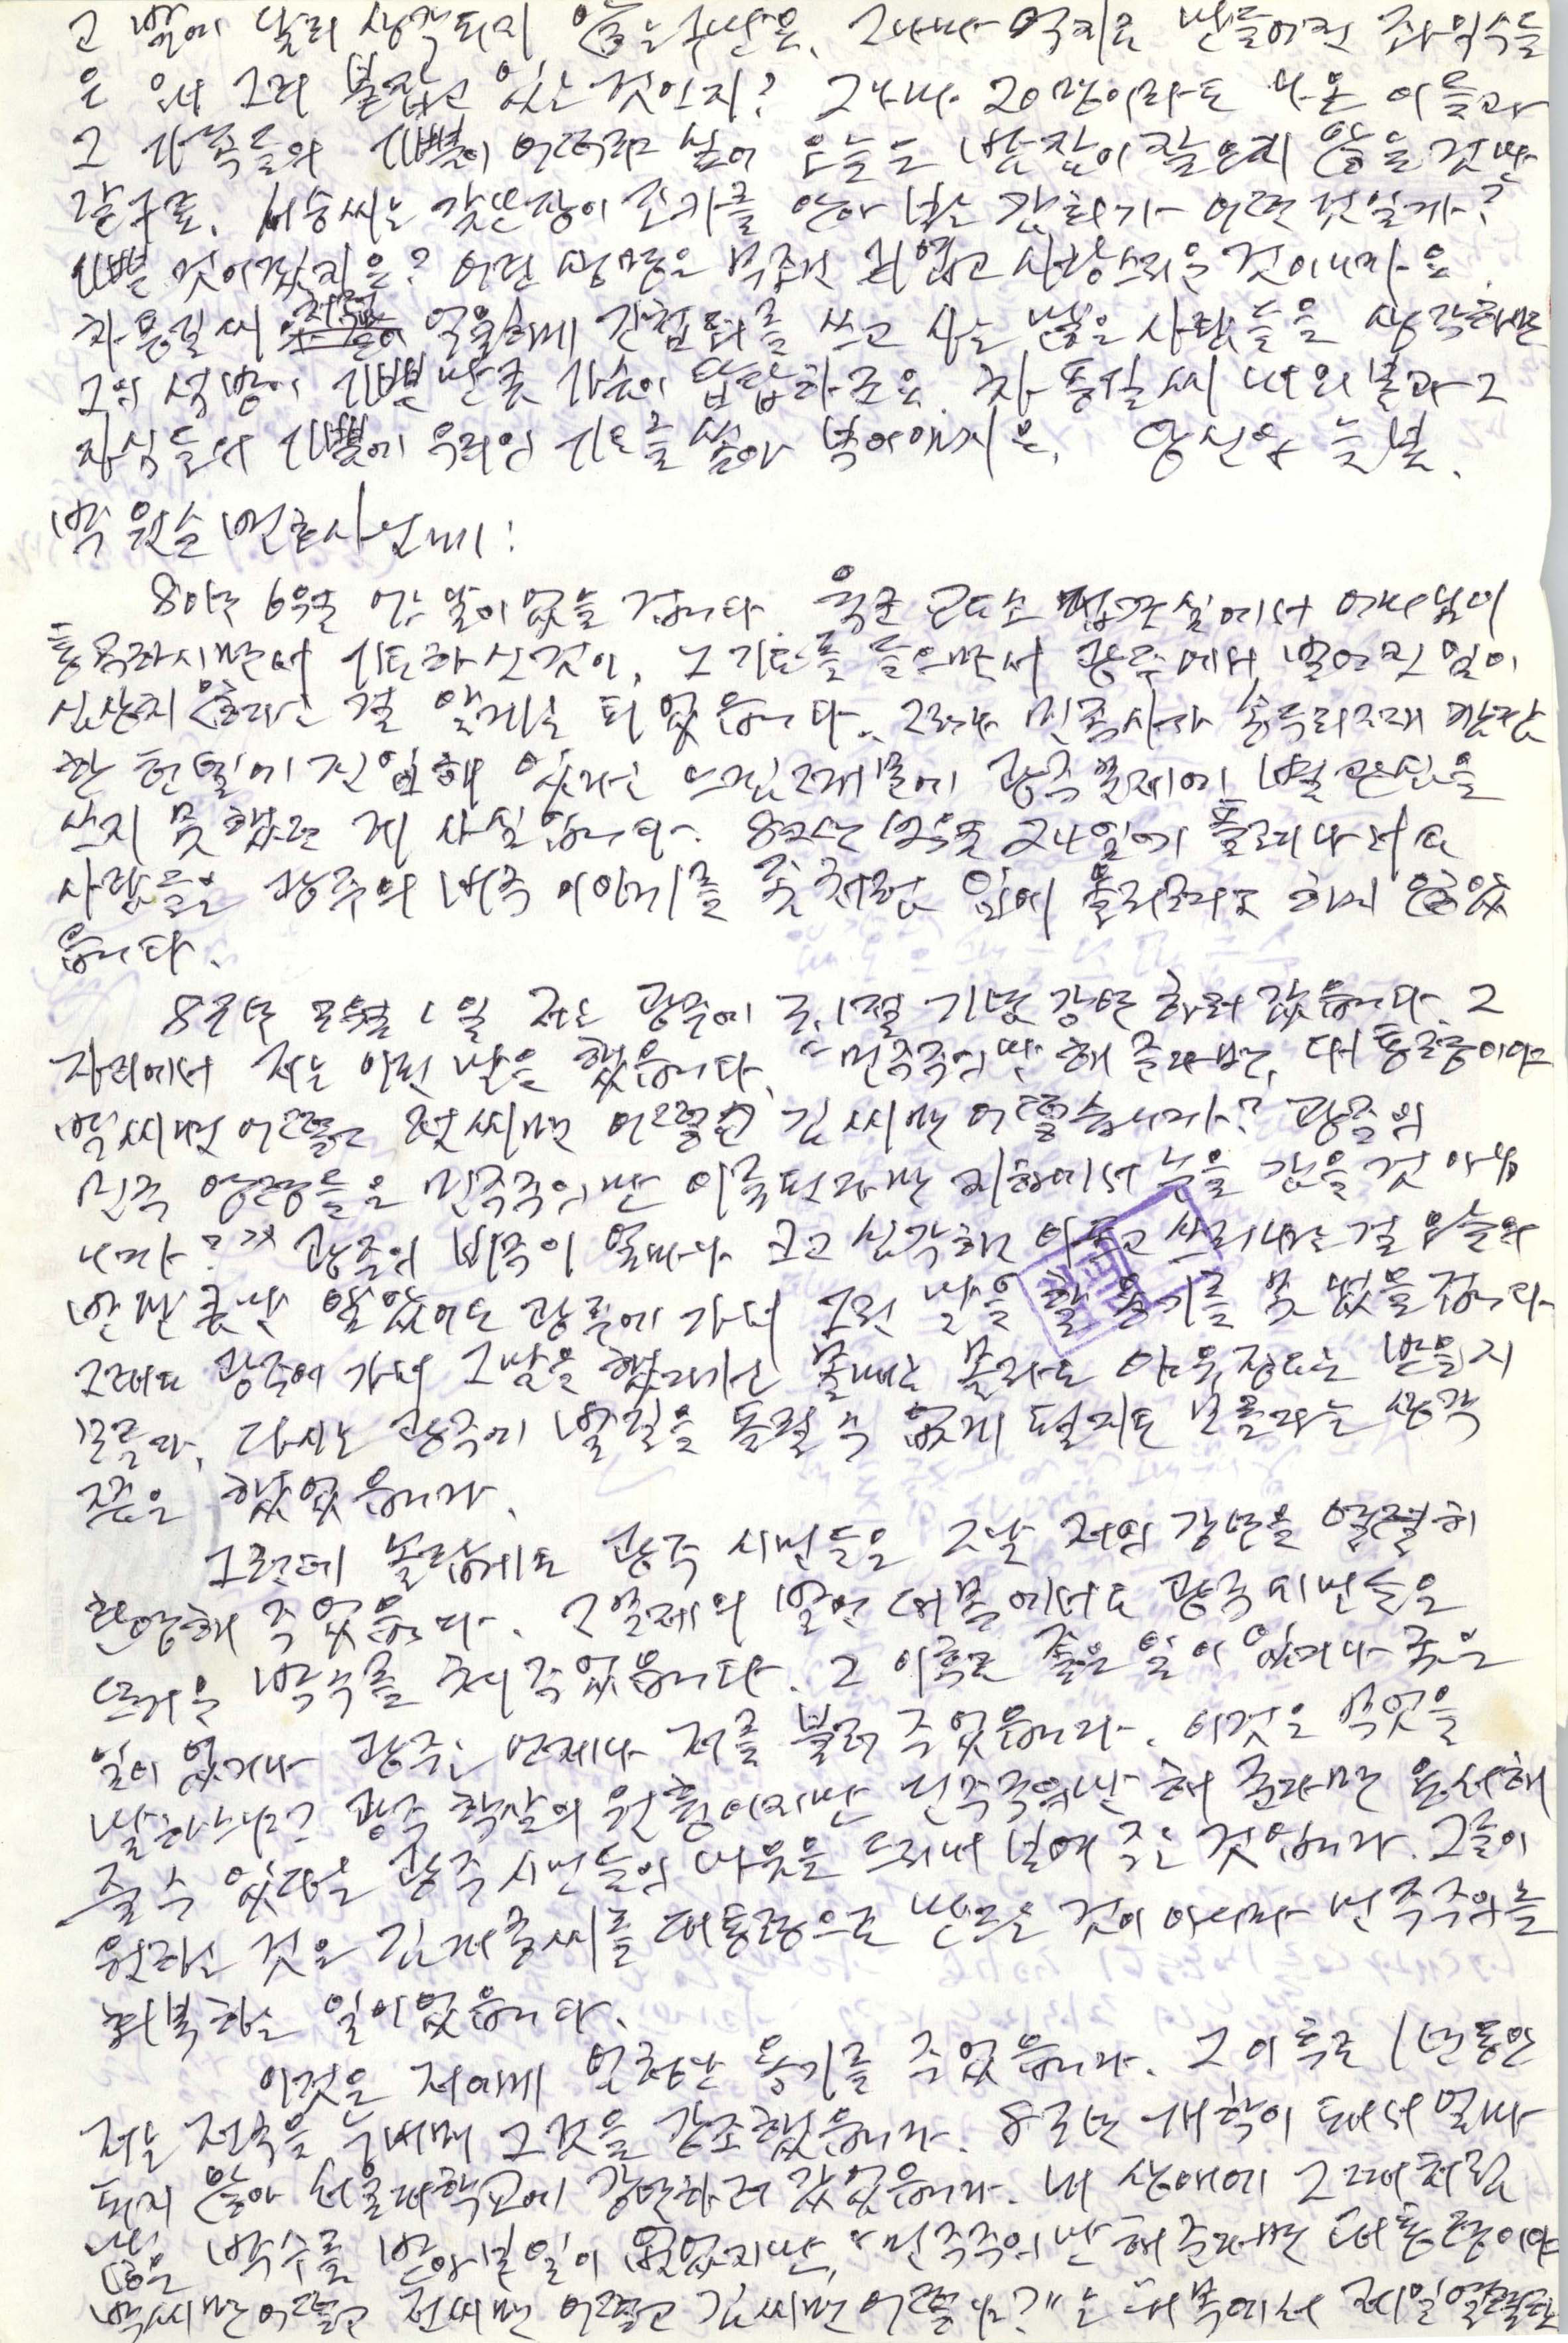 고 밖에 달리 생각되지 않는군만요. 그나마 억지로 만들어진 좌익수들
은 왜 그리 붙잡고 있는 것인지? 그나마 20명이라도 나온 이들과
그 가족들의 기쁨이 어떠랴 싶어 오늘도 밤잠이 잘 오지 않을 것만
같구료. 서승씨는 갓난장이 조카를 안아 보는 감회가 어떤 것일까?
기쁠 것이겠지요? 어린 생명은 무조건 귀엽고 사랑스러운 것이니까요.
차풍길씨처럼 억울하게 간첩죄를 쓰고 사는 많은 사람들을 생각하면
그의 석방이 기쁜 만큼 가슴이 답답하군요. 차풍길씨 내외분과 그
자식들의 기쁨에 우리의 기도를 쏟아 부어야지요. 당신의 늦봄.
박원순 변호사님께:
80년 6월 어느 날이었을 겁니다. 육군 교도소 접견실에서 어머님이
통곡하시면서 기도하신 것이. 그 기도를 들으면서 광주에서 벌어진 일이
심상치 않다는 걸 알게는 되었습니다. 그러나 민족사가 송두리째 캄캄
한 터널에 진입해 있다는 느낌 때문에 광주 문제에 별 관심을
쓰지 못했던 게 사실입니다. 82년 12월 24일에 풀려나서도
사람들은 광주의 비극 이야기를 좀처럼 입에 올리려고 하지 않았
습니다.
85년 3월 1일 저는 광주에 3.1절 기념 강연하러 갔습니다. 그
자리에서 저는 이런 말을 했습니다. "민주주의만 해 준다면, 대통령이야
박씨면 어떻고 전씨면 어떻고 김씨면 어떻습니까? 광주의
민주 영령들은 민주주의만 이룩된다면 지하에서 눈을 감을 것 아닙
니까?" 광주의 비극이 얼마나 크고 심각하고 아프고 쓰라리다는 걸 오늘의
반만큼만 알았어도 광주에 가서 그런 말을 할 용기를 못 냈을 겁니다.
그래도 광주에 가서 그 말을 했다가는 몰매는 몰라도 야유 정도는 받을지
모른다, 다시는 광주에 발길을 돌릴 수 없게 될지도 모른다는 생각
쯤은 했었습니다.
그런데 놀랍게도 광주 시민들은 그날 저의 강연을 열렬히
환영해 주었습니다. 그 문제의 발언 대목에서도 광주 시민들은
뜨거운 박수를 쳐 주었습니다. 그 이후로 좋은 일이 있거나 궂은
일이 있거나 광주는 언제나 저를 불러 주었습니다. 이것은 무엇을
말합니까? 광주 학살의 원흉이지만 민주주의만 해 준다면 용서해
줄 수 있다는 광주 시민들의 마음을 드러내 보여 주는 것입니다. 그들이
원하는 것은 김대중씨를 대통령으로 만드는 것이 아니라 민주주의를
회복하는 일이었습니다.
이것은 저에게 엄청난 용기를 주었습니다. 그 이후로 1년 동안
저는 전국을 누비며 그것을 강조했습니다. 85년 개학이 돼서 얼마
되지 않아 서울대학교에 강연하러 갔었습니다. 내 생애에 그때처럼
많은 박수를 받아 본 일이 없었지만, "민주주의만 해 준다면 대통령이야
박씨면 어떻고 전씨면 어떻고 김씨면 어떻냐?"는 대목에서 제일 열렬한